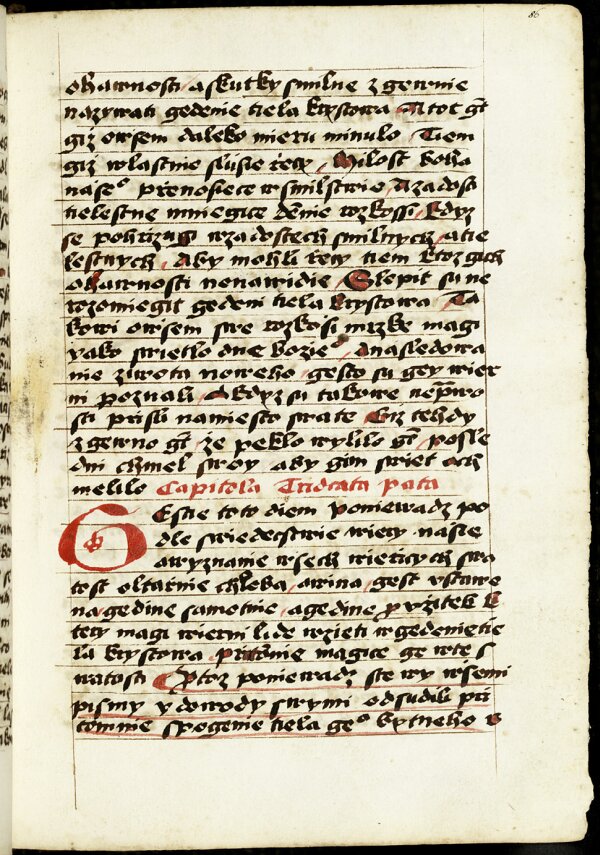 86
ohawnosti a skutky smilne zgewnie
nazywati gedenie tiela krystowa A tot gt
giz owsem daleko mieru minulo Tiem
giz wlastnie slusie rzecy Milost boha
naseo przenosiece w smilstwie A zadosti
tielestne mniegice dennie rozkossi kdyz
se pohrizugi w zadostech smilnych a tie
lestnych Aby mohli rzecy tiem ktoz gich
ohawnosti nenawidie Slepit su ne
rozomiegit gedeni tiela krystowa Ta
kowi owsem swe rozkosi mrzke magi
yako swietlo dne bozieo A nasledowa
nie ziwota noweho gesto su gey wier
ni poznali A kdyz su takowe neprawo
sti prisli na miesto swate Giz tehdy
zgewno gt ze peklo wylilo gt posle
dni chmel swoy aby gim swiet och
melilo Capitola Tridcata pata
Gestie toto diem poniewadz po
dle swiedecstwie wiery nasie
a wyznanie wsech wiericych swa
tost oltarnie chleba a wina gest vstawe
na gedine samotnie a gedine p vzitek k
tery magi wierni lide wzieti w gedenie tie
la krystowa pritomnie magice ge w te s
watosti Protoz poniewadz ste wy wsemi
pismy y dowody swymi odsudili pri
tomnie spogenie tiela geo bytneho w